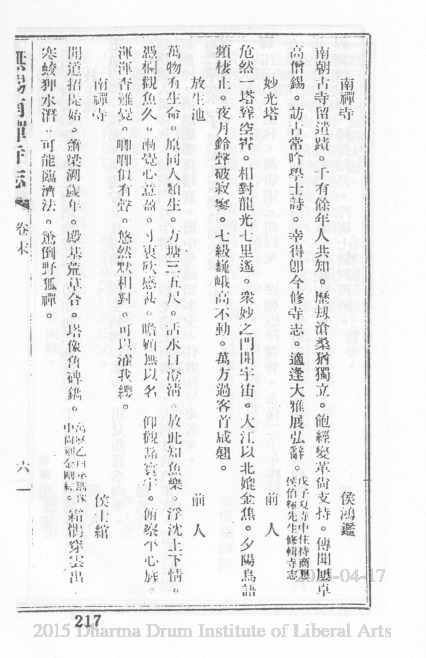 南禪寺　侯鴻鑑
南朝古寺留遺蹟。千有餘年人共知。歷刼滄桑猶獨立。飽經變革尙支持。傳聞駐卓
高僧錫。訪古常吟學士詩。幸得卽今修寺志。適逢大雅展弘辭。戊子夏寺中住持商應侯伯輝先生修輯寺志
妙光塔　前人
危然一塔聳空霄。相對龍光七里遙。衆妙之門開宇宙。大江以北媲金焦。夕陽鳥語
頻棲止。夜月鈴聲破寂寥。七級巍峨高不動。萬方過客首咸翹。
放生池　前人
萬物有生命。原同人類生。方塘三五尺。活水自澄淸。放此知魚樂。浮沈上下情。
憑欄觀魚久。漸覺心意盈。寸衷欣感甚。瞻顧無以名。仰觀品寰宇。俯察平心旌。
渾渾杳難覺。唧唧俱有聲。悠然默相對。可以濯我纓。
南禪寺　侯士綰
開道招提始。蕭梁溯歲年。殿基荒草合。塔像舊碑鐫。霜鶻穿雲出。
寒鮻狎水潛。可能臨濟法。遊倒野狐禪。
無錫南禪寺志　卷末　六一
217
-04-17
2015 Dharma Drum Institute of Liberal Arts